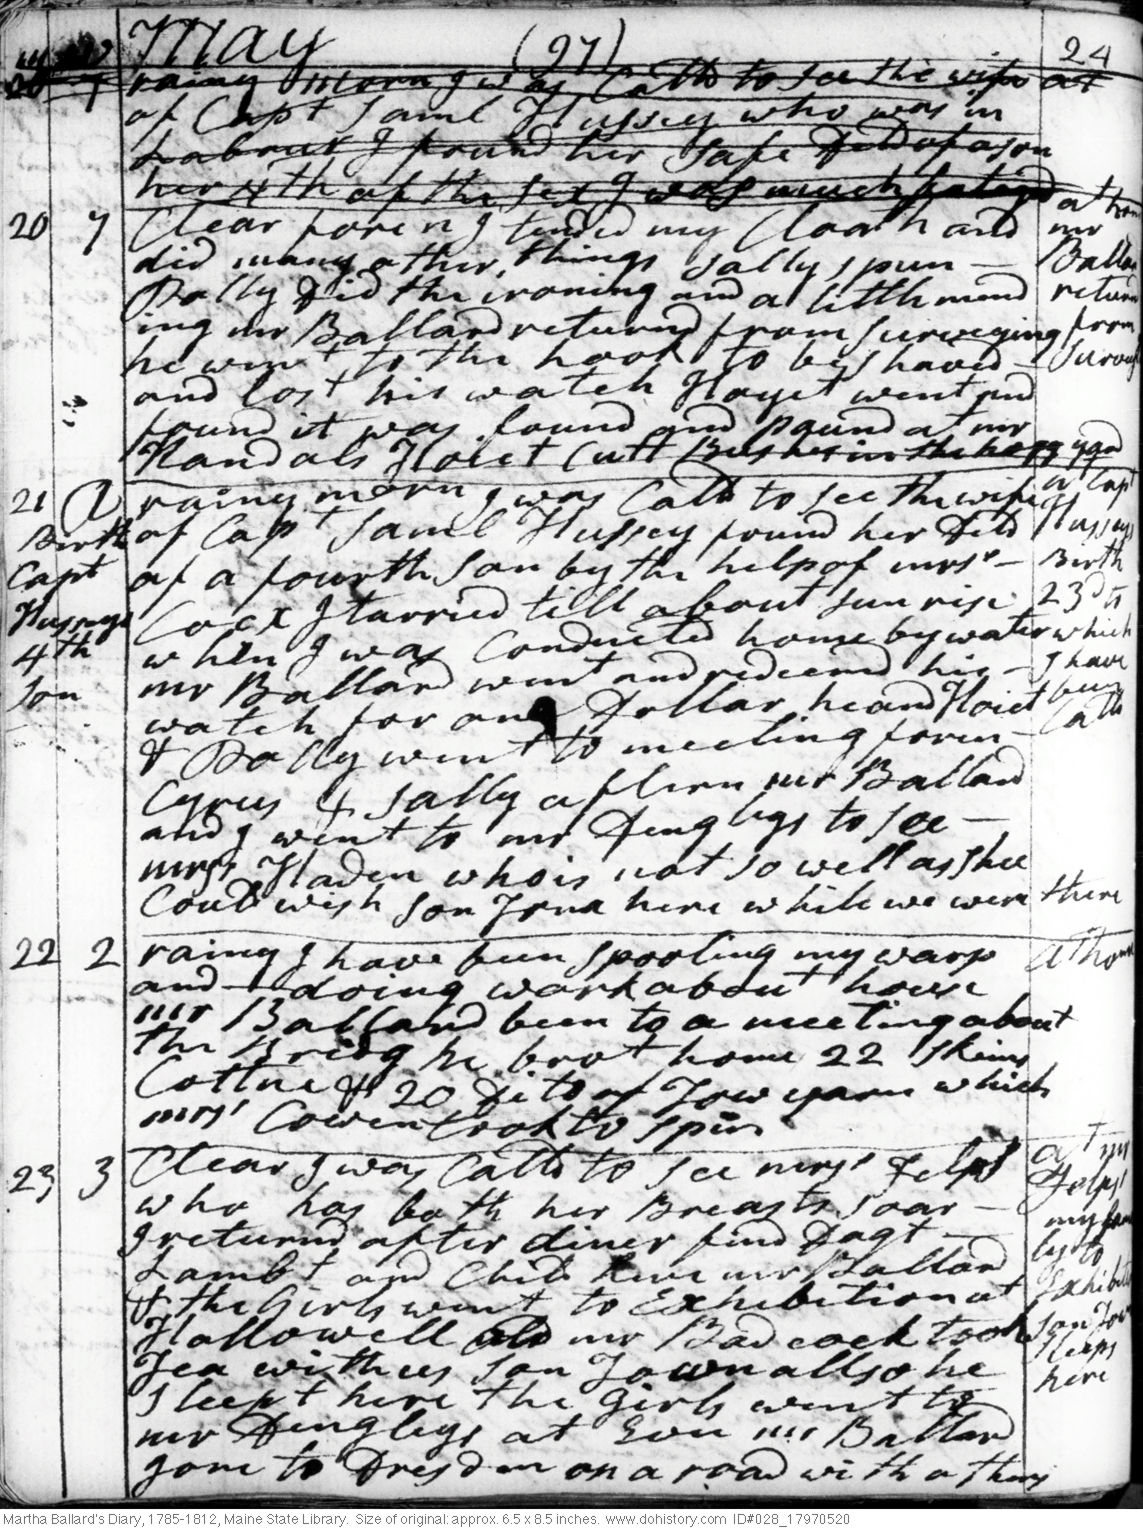 May (97) 24
20 7 rainy morn I was Calld to see the wife at
of Capt Saml Hussey who was in
Labour I found her safe Deld of a son
her 4th of the sex I was much fatigd
20 7 Clear foren I tended my Cloath and
did many other things Sally spun —
Dolly Did the ironing and a litth mend
ing mr Ballard returnd from surveying
he went to the hook to be shaved —
and lost his watch went and
found it was found and at mr
Randals Cutt Bushes in the
at home
mr
Ballard
return
from
21 A rainy morn I was Calld to see the wife
of Capt Saml Hussey found her Deld
of a fourth son by the help of mrss —
Cocx I tarried till about sun rise
when I was Conducted home by water
mr Ballard went and redeemd his —
watch for one Dollar he and
& Dolly went to meeting foren —
Cyrus & Sally aftern mr Ballard
and I went to mr Dinglegs to see —
mrss Haden who is not so well as shee
Could wish son here while we were there
Birth
Capt
Husseys
4th
son
at Capt
Husseys
Birth
23d to
which
I have
been
Calld
22 2 rainy I have been spooling my warp
and doing work about house
mr Ballard been to a meeting about
the Bridg he brot home 22 skeins
Cottne & 20 Dito of Tow yarn which
mrss Cowen took to spin
at home
23 3 Clear I was Calld to see mrss Felps
who has both her Breasts soar —
I returnd after diner find Dagt —
Lambt and Child here mr Ballard
& the Girls went to Exhibition at
Hallowell mr Badcock took
Tea with us son Town allso he
sleept here the Girls went to
mr Dinglegs at Evn mr Ballard
gone to Dresden on a road with others
at mr
Felps
my fam
ly to
Exhibiti
son Tow
sleeps
here
Martha Ballard's Diary, 1785-1812, Maine State Library. Size of original: approx. 6.5 x 8.5 inches. www.dohistory.com ID#028_17970520